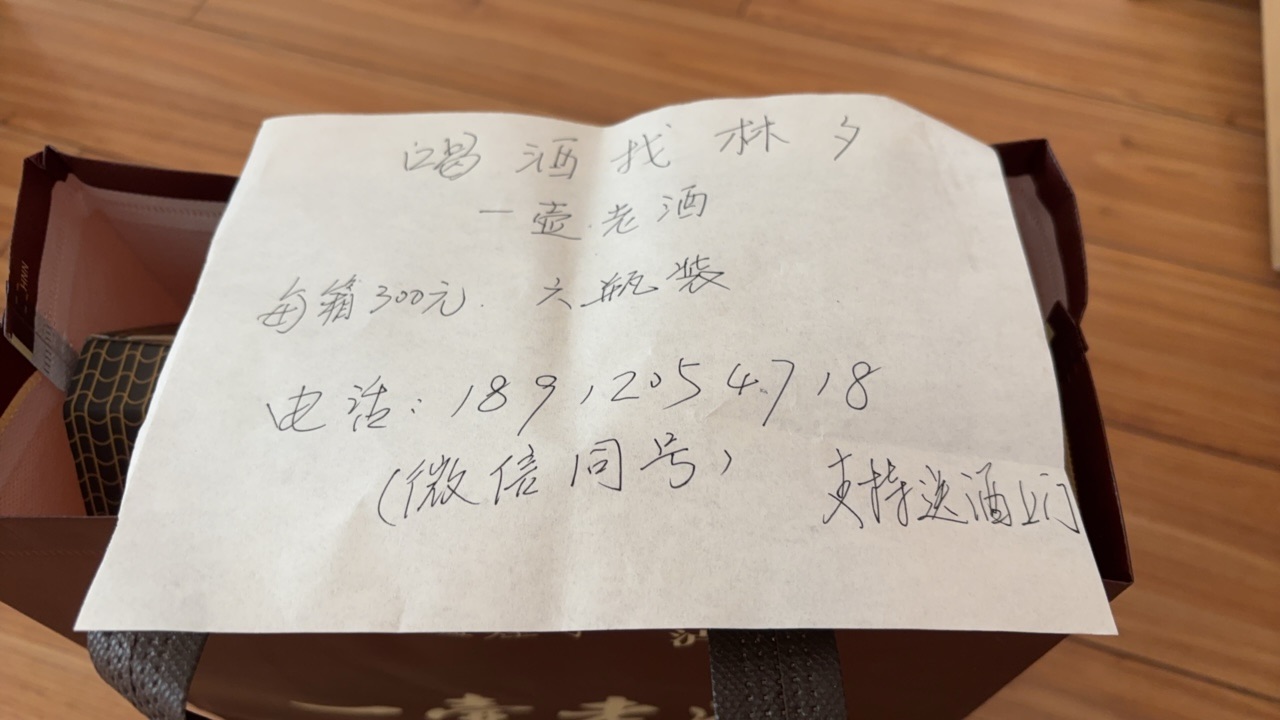 喝酒找林夕
一壶老酒
每箱300元. 六瓶装
电话:18912054718
(微信同号)
支持送酒上门
一壶老酒